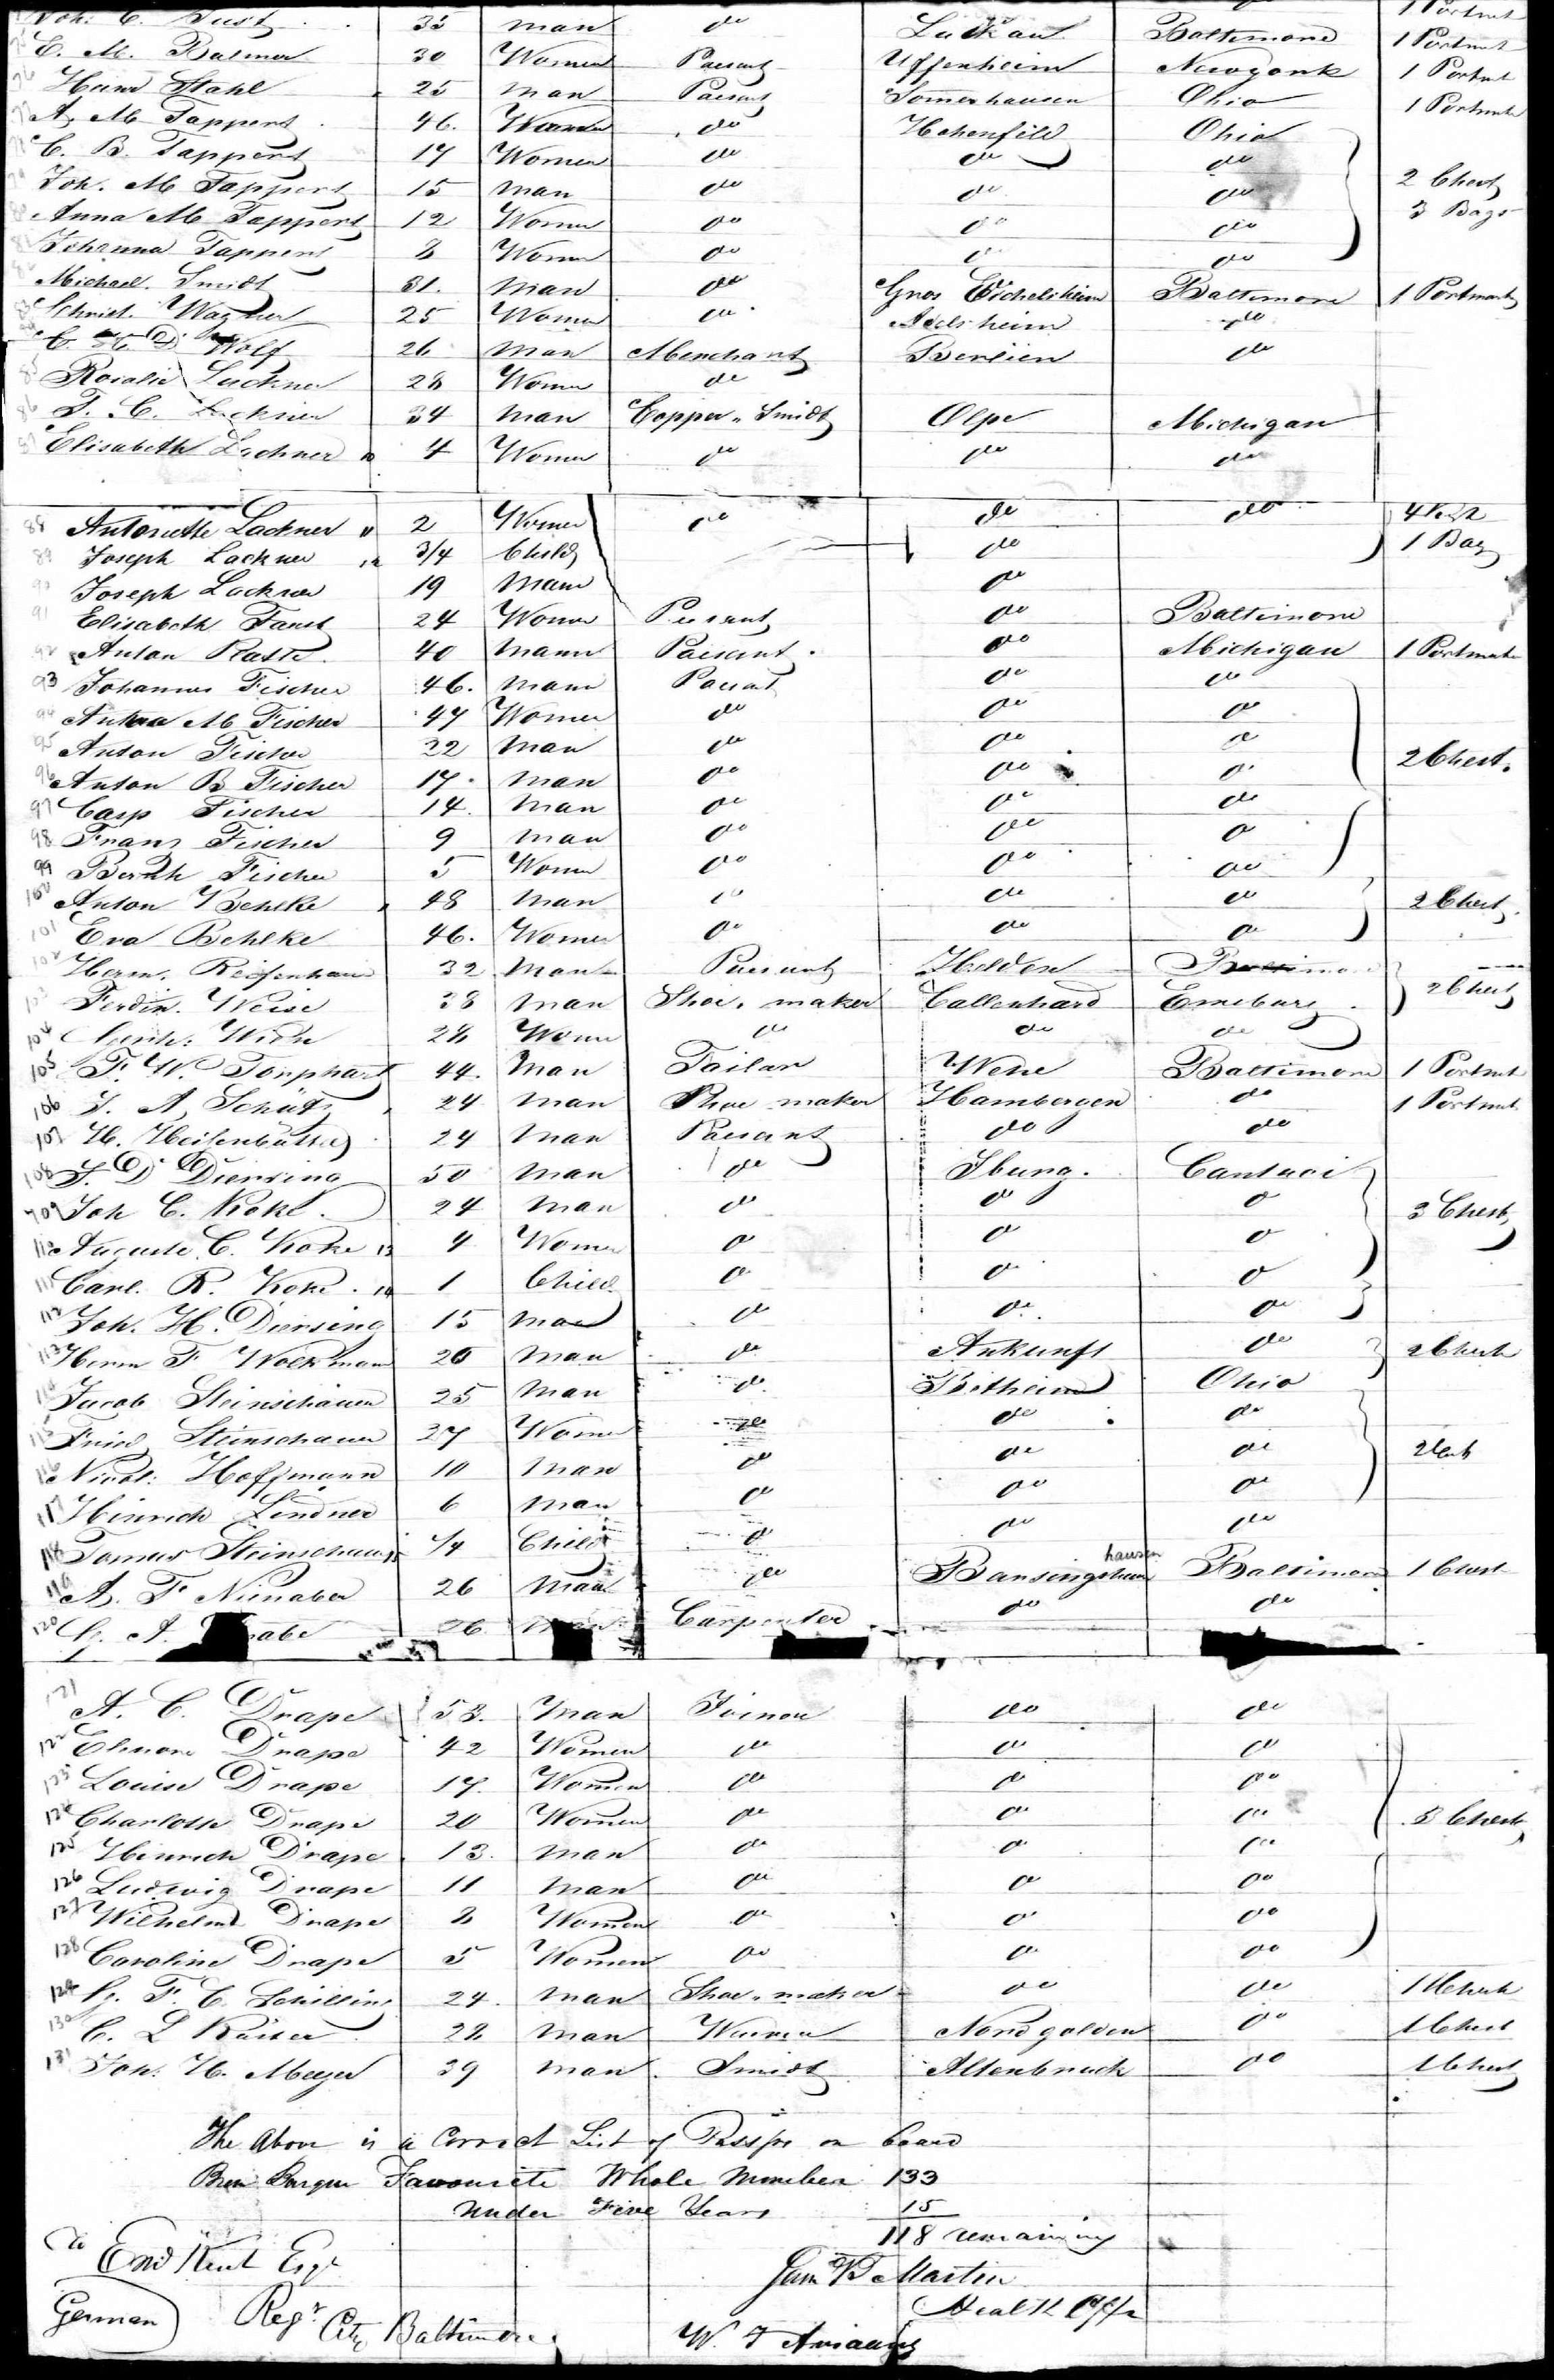 Joh. C. Just 35 man do Luckau Baltimore 1 Portmt
E. M. Balmer 30 Women Paesant Uffenheim Newyork 1 Portmt
Stahl 25 man Paesant Sommerhausen Ohio 1 Portmt
A. M Tappert 46. Women do Hohenfeld Ohio
C. B. Tappert 17 Women do do do
Joh. M Tappert 15 man do do do 2 Chest
Anna M Tappert 12 Women do do do 3 Bags
Johanna Tappert 8 Women do do do
Michael. Smidt 31. man do Gros Eichelsheim Baltimore 1 Portmant
Schmid. Wagner 25 Women do Adelsheim do
Wolf 26 man Merchant Berlien do
Rosalie Lackner 28 Women do
34 man Copper Smidt Olpe Michigan
Elisabeth Lackner 10 4 Women do do do
88 Antonette Lackner 11 2 Women do do do
89 Joseph Lackner 12 3/4 Child do 1 Bag
90 Joseph Lackner 19 Mann do
91 Elisabeth Faust 24 Women Paesant do Baltimore
92 Anton Raste 40 Mann Paisant do Michigan 1 Portmt
93 Johannes Fischer 46. Mann Paesant do do
94 M Fischer 47 Women do do do
95 Anton Fischer 22 man do do do 2 Chest.
96 Anton B Fischer 17. man do do do
97 Casp Fischer 14. man do do do
98 Franz Fischer 9 man do do do
99 Fischer 5 Women do do do
100 Anton Behlke 48 man do do do 2 Chest
101 Eva Behlke 46. Women do do do
102 Herm. 32 Man Paesant Helden
103 Ferdin. Weise 38 man Shoe. maker Callenhard 2 Chest
104 28 Women do do do
105 F. W. 44. Man Tailar Baltimore 1 Portmt
106 J. A. Schütz 24 man Shoe maker Hambergen do 1 Portmt
107 H. Heitenbüttel 24 man Paesant do do
108 J. D Diersing 50 man do Iburg. Cantuci
109 Joh C. Koke. 24 man do do do 3 Chest
110 Auguste C. Koke 13 4 Women do do do
111 Carl. R. Koke. 14 1 Child do do do
112 Joh. H. Diersing 15 man do do do
113 Herm F Wolkman 20 man do Ankunft do 2 Chest
114 Jacob Steinschauer 25 Man do Ohio
115 Fried Steinschauer 27 Women do do do
116 Nicol: Hoffmann 10 man do do do
117 Hinrich Lindner 6 man do do do
118 Steinschauer 15 Child do do do
119 A. F Nienaber 26 man do hausen Baltimore 1 Chest
120 26 Carpenter do do
121 A. C. Drape 53. Man Joiner do do
122 Elenore Drape 42 Women do do do
123 Louise Drape 17. Women do do do
124 Charlotte Drape 20 Women do do do 3 Chest
125 Hinrich Drape 13. man do do do
126 Ludewig Drape 11 man do do do
127 Wilhelmd Drape 8 Women do do do
128 Caroline Drape 5 Women do do do
129 F. C. Schilling 24. man Shoe maker do do 1 Chest
130 C. L Kaiser 28 man Nordgolden do 1 Chest
131 Joh. H. Meeyer 39 man. Smidt Altenbruck do 1 Chest
The Above is a Correct List of Passgrs on board
Brem Barque Favourite Whole Number 133
Under Five Years 15
118 remaining
To Emd Kent Esqr
Sam B Martin
Health Offr
German Regr City Baltimore
W.